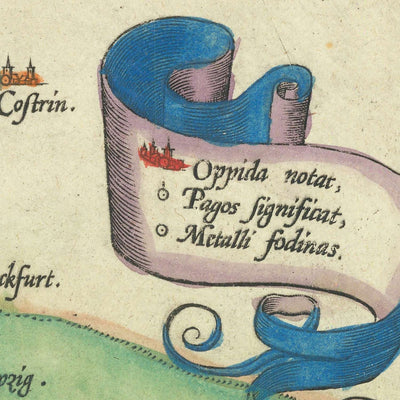 Costrin.
Oppida notat,
Pagos significat,
Metalli fodinas.
ckfurt.
pzig.